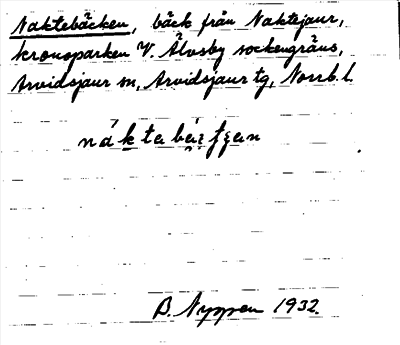 Naktebäcken, bäck från Naktejaur,
kronoparken V. Älvsby sockengräns,
Arvidsjaur sn, Arvidsjaur tg, Norrb. l.
B. Nyppen 1932.